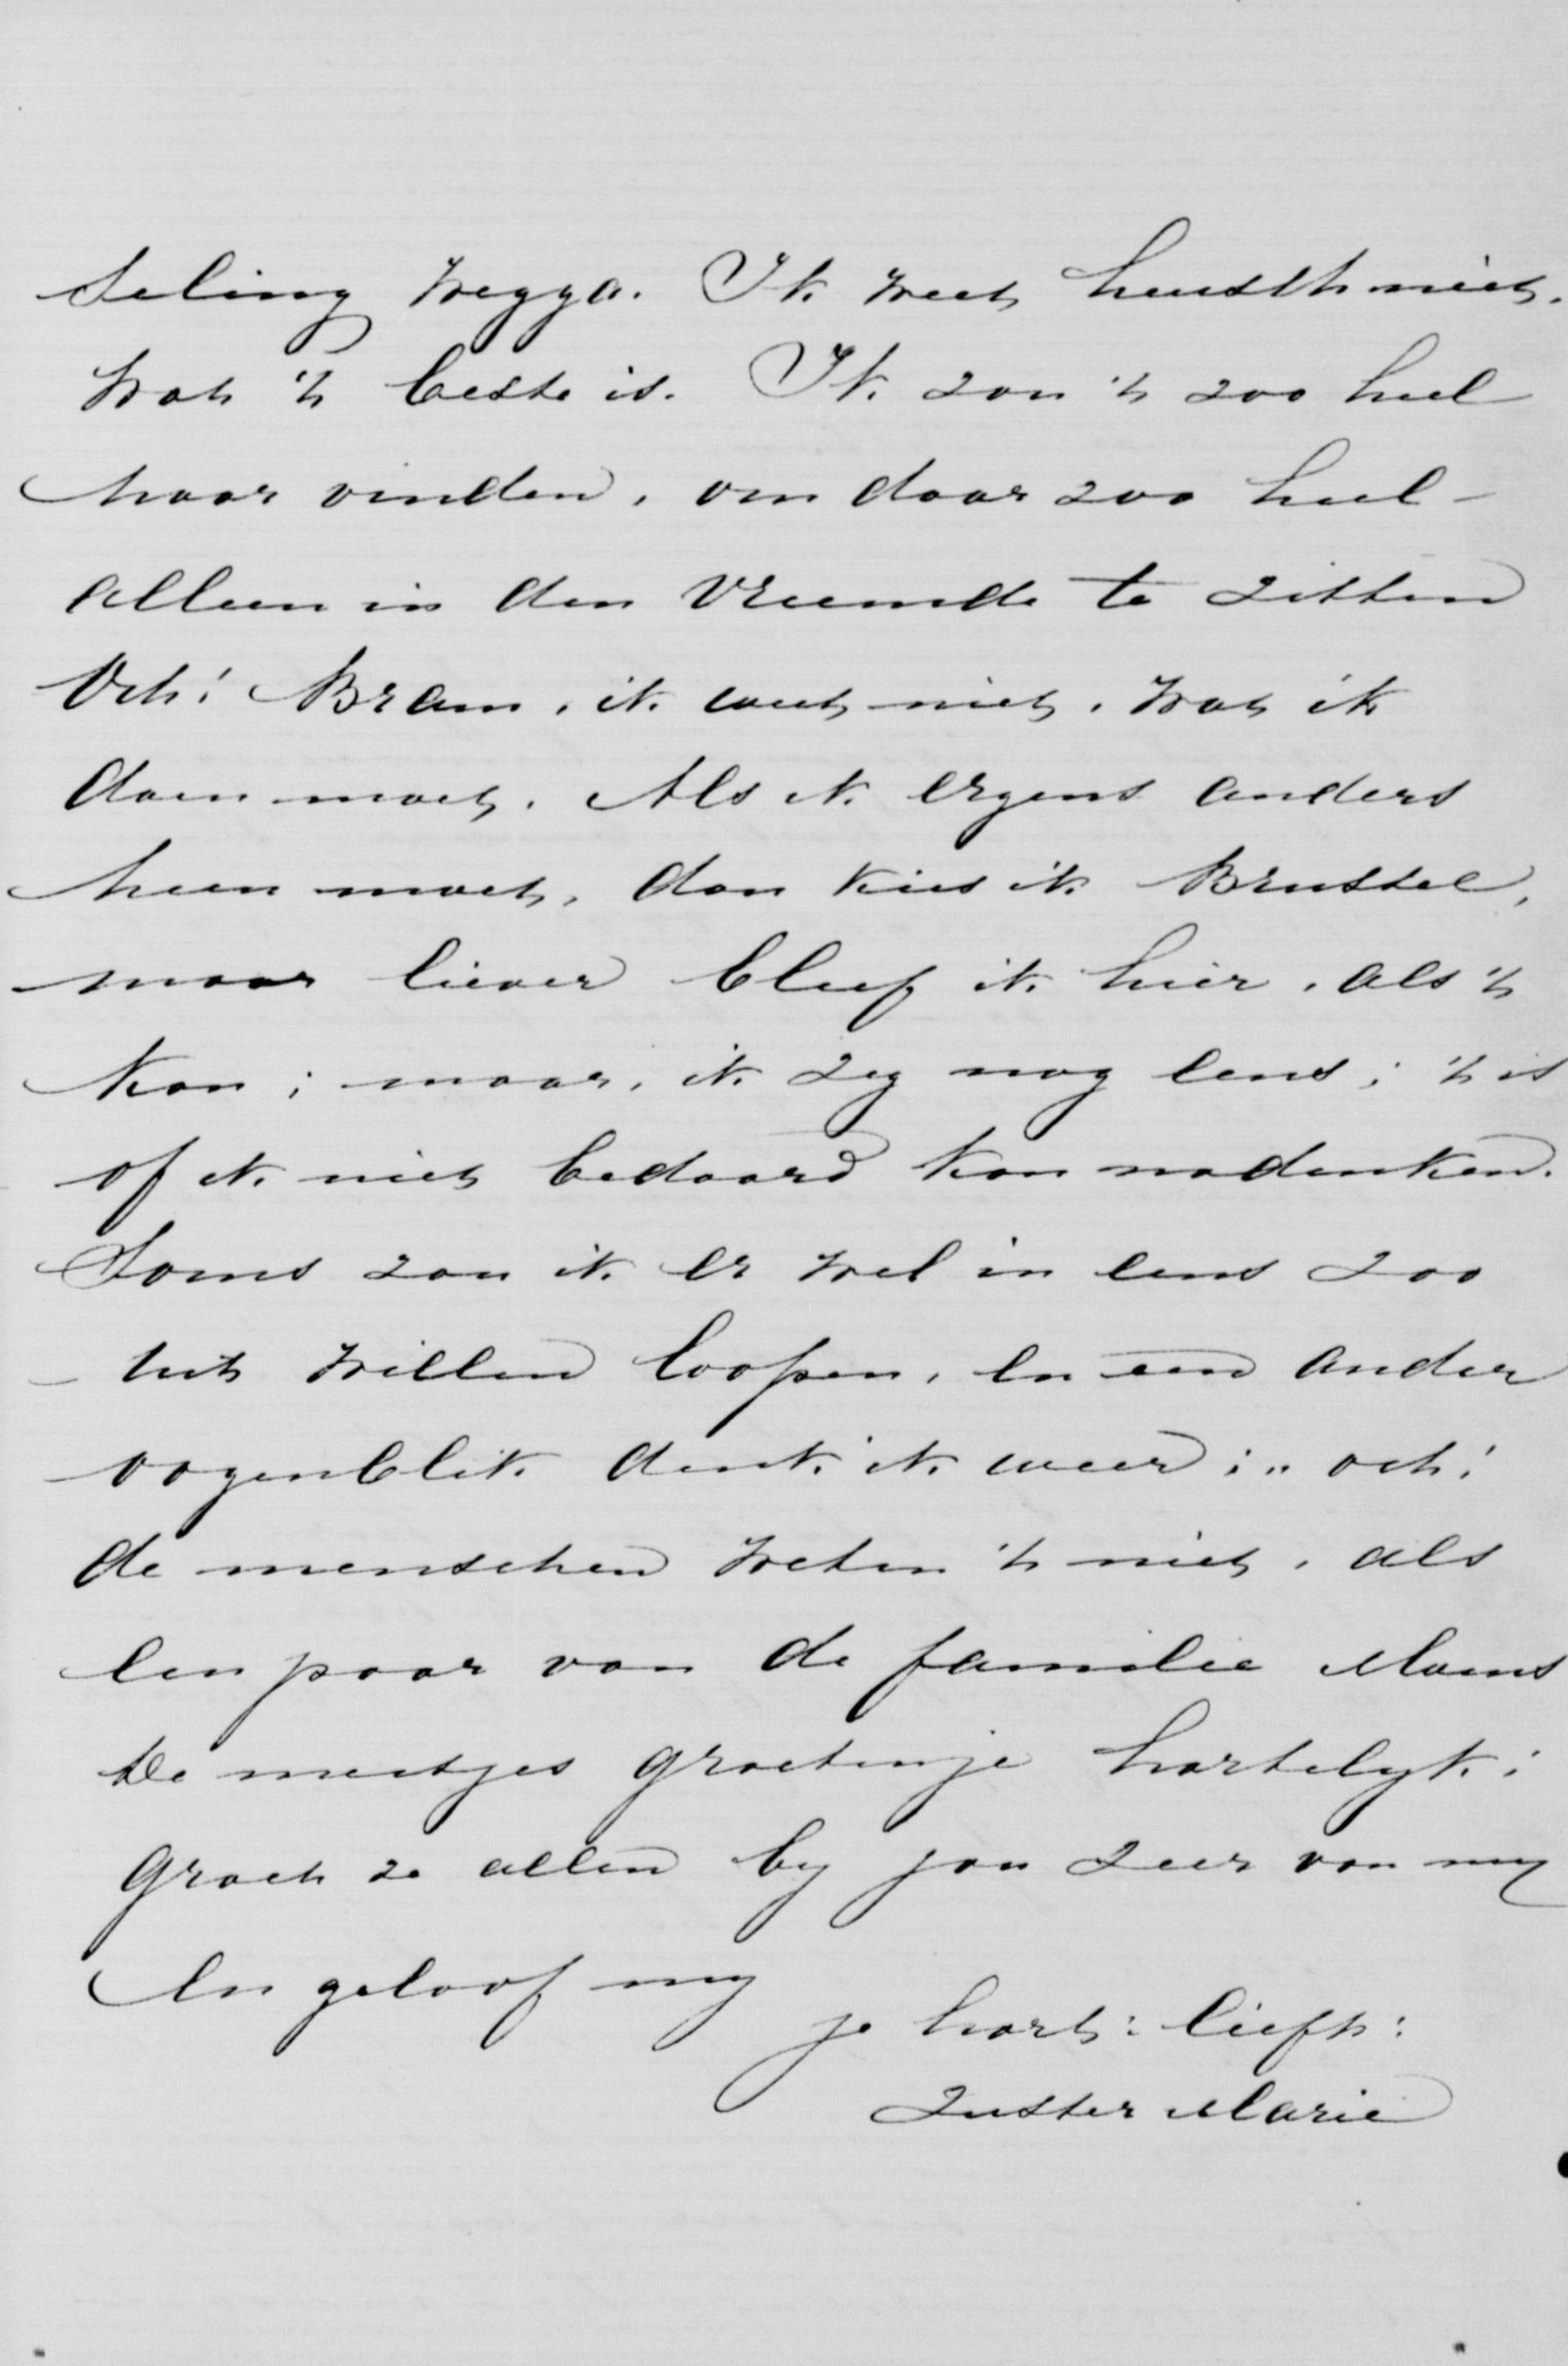 seling wegga. Ik weet heusch niet.
wat 't beste is. Ik zou 't zoo heel
naar vinden, om daar zoo heel-
alleen in den vreemde te zitten
Och! Bram, ik weet niet, wat ik
doen moet. Als ik ergens anders
heen moet, dan kies ik Brussel,
maar liever bleef ik hier, als 't
kon; maar, ik zeg nog eens; 't is
of ik niet bedaard kan nadenken.
Soms zou ik er wel in eens zoo
uit willen loopen, en een ander
oogenblik denk ik weer: „och!
de menschen weten 't niet, als
een paar van de familie Maens
De meisjes groeten je hartelijk;
Groet ze allen by jou zeer van my
En geloof my
je hart: liefh:
Zuster Marie